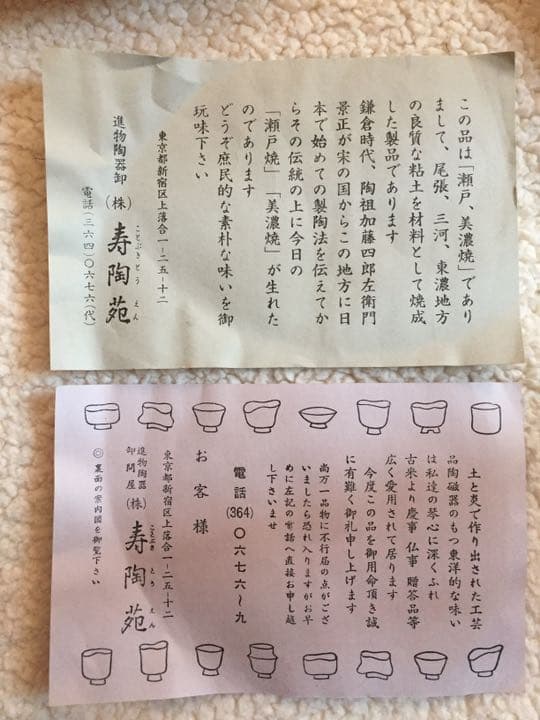 この品は「瀬戸、美濃焼」であり
まして、尾張、三河、東濃地方
の良質な粘土を材料として焼成
した製品であります
鎌倉時代、陶祖加藤四郎左衛門
景正が宋の国からこの地方に日
本で始めての製陶法を伝えてか
らその伝統の上に今日の
「瀬戸焼」「美濃焼」が生れた
のであります
どうぞ庶民的な素朴な味いを御
玩味下さい
東京都新宿区上落合一ー二五ー十二
進物陶器卸(株)寿陶苑
ことぶきとうえん
電話(三六四)〇六七六(代)
土と炎で作り出された工芸
品陶磁器のもつ東洋的な味い
は私達の琴心に深くふれ
古来より慶事 仏事 贈答品等
広く愛用されて居ります
今度この品を御用命頂き誠
に有難く御礼申し上げます
尚万一品物に不行届の点がござ
いましたら恐れ入りますがお早
めに左記の電話へ直接お申し越
し下さいませ
電話(364)〇六七六〜九
お客様
東京都新宿区上落合一ー二五ー十二
進物陶器
卸問屋(株)寿陶苑
ことぶきとうえん
◎裏面の案内図を御覧下さい